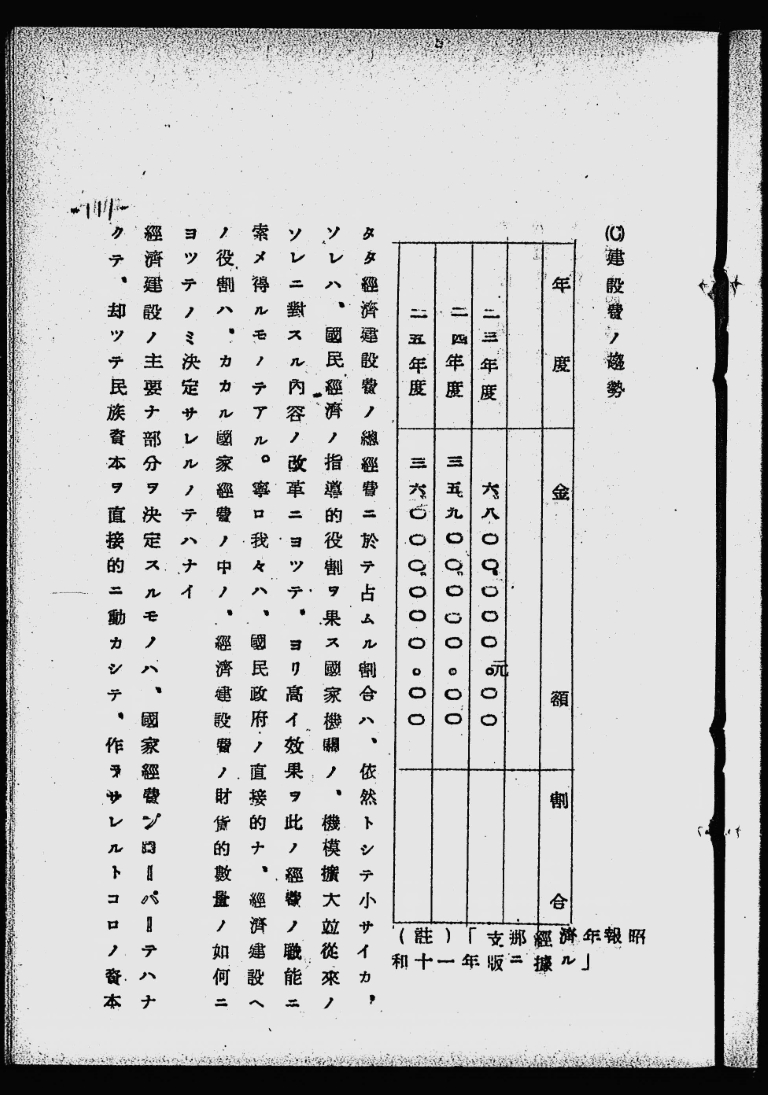 (C)建設費ノ趨勢
年度 金額 割合
二三年度 六、八〇〇、〇〇〇元。〇〇
二四年度 三五、九〇〇、〇〇〇。〇〇
二五年度 三六、〇〇〇、〇〇〇。〇〇
(註)「支那經濟年報
昭和十一年版」ニ據ル
タタ經濟建設費ノ總經費ニ於テ占ムル割合ハ、依然トシテ小サイカ,
ソレハ、國民經濟ノ指導的役割ヲ果ス國家機關ノ、機模擴大竝從來ノ
ソレニ對スル內容ノ改革ニヨツテ、ヨリ高イ效果ヲ此ノ經費ノ職能ニ
索メ得ルモノテアル。寧ロ我々ハ、國民政府ノ直接的ナ、經濟建設ヘ
ノ役割ハ、カカル國家經費ノ中ノ、經濟建設費ノ財貨的數量ノ如何ニ
ヨツテノミ決定サレルノテハナイ
經濟建設ノ主要ナ部分ヲ決定スルモノハ、國家經費ソローパーテハナ
クテ、却ツテ民族資本ヲ直接的ニ動カシテ、作ラサレルトコロノ資本